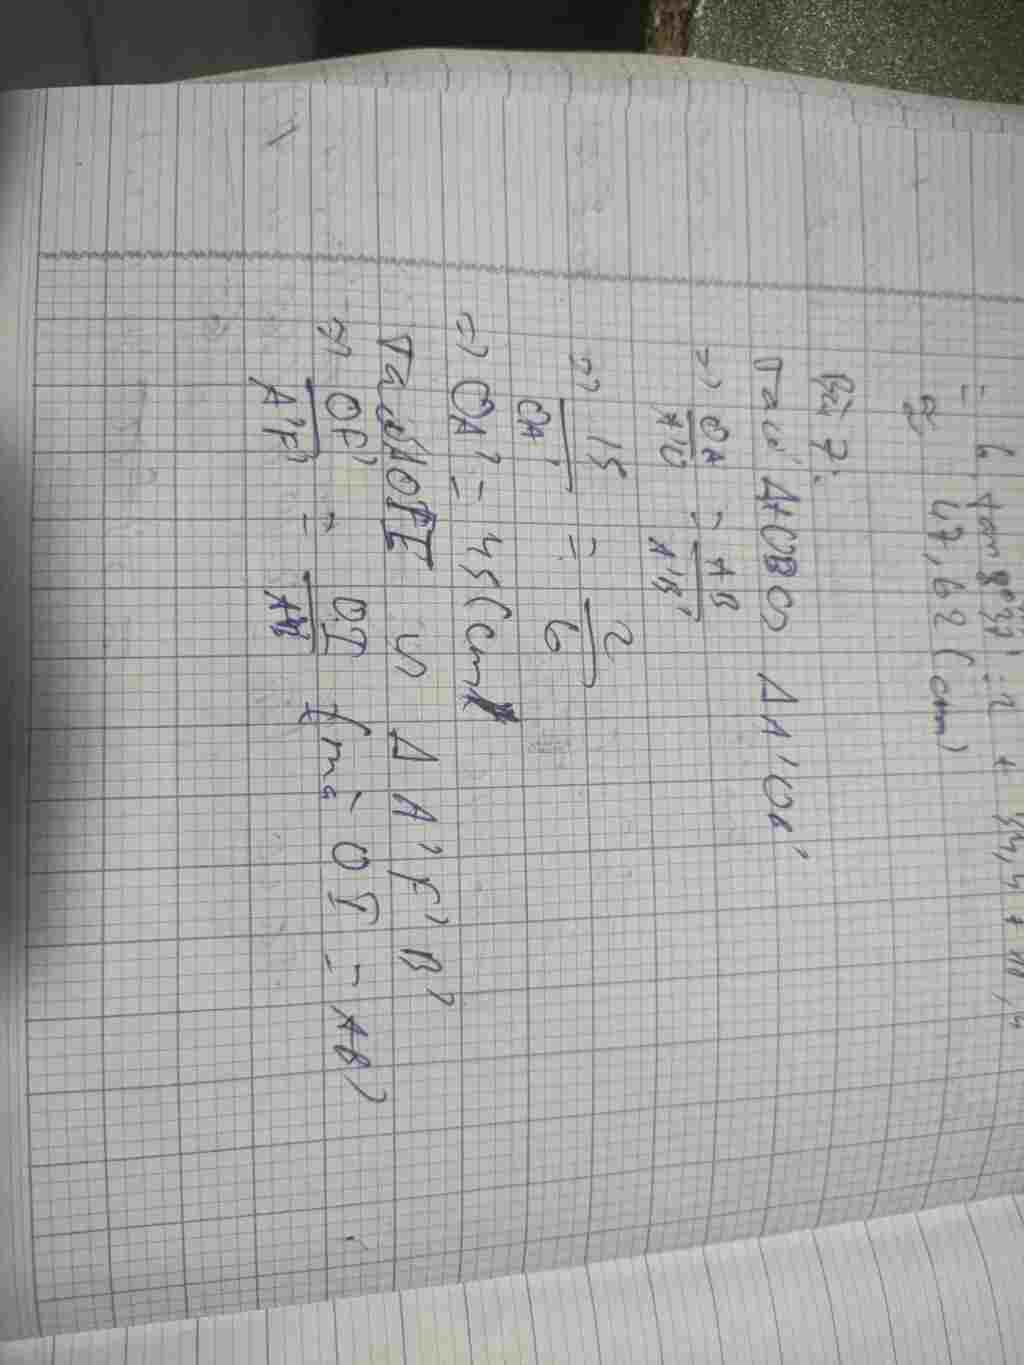 = h tan 30°37' = 2 + 34,4 + 11,4
≈ 47,62 (cm)
Bài 7:
Ta có ΔAOB ∽ ΔA'OB'
=> OA/A'O = AB/A'B'
=> 15/OA' = 2/6
=> OA' = 45 (cm)
Ta có ΔOF'I ∽ Δ A'F'B'
=> OF'/A'F' = OI/A'B' (mà OI = AB)